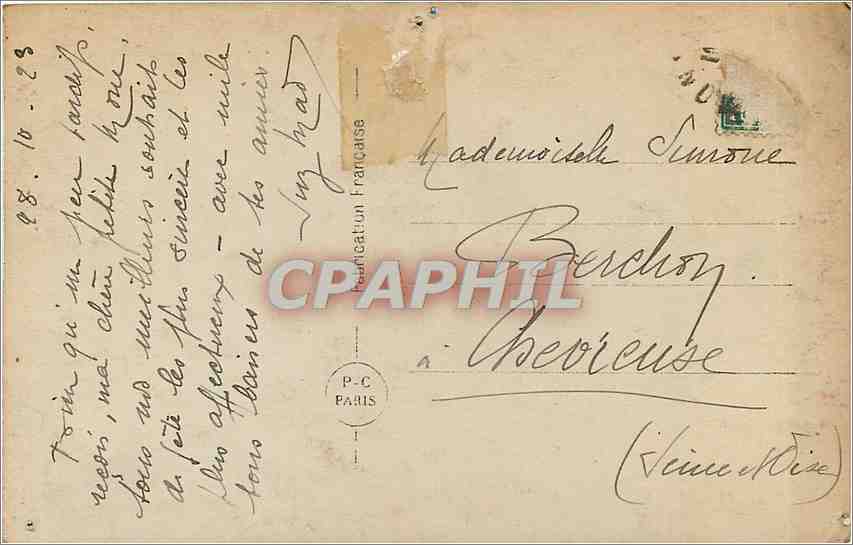 28.10.23
qu'un peu tardifs,
reçois, ma chère petite Mone,
tous nos meilleurs souhaits
de fête les plus sincères et les
plus affectueux – avec mille
bons baisers de tes amies.
Suz Mad
Fabrication Française
P-C
PARIS
CPAPHIL
Mademoiselle Simone
Berchon
à Chevreuse
(Seine et Oise)